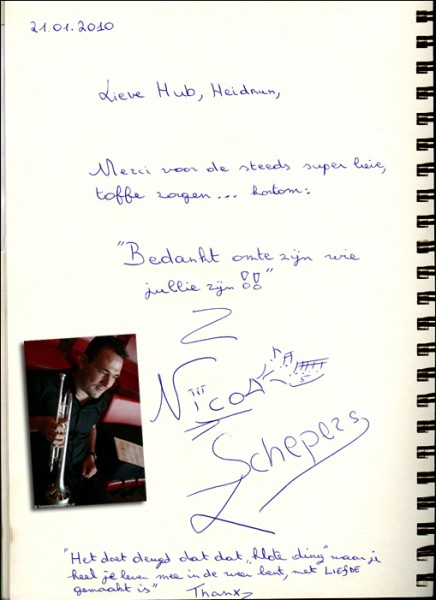 21.01.2010
Lieve Hub, Heidrun,
Merci voor de steeds super lieve,
toffe zorgen... kortom:
"Bedankt omte zijn wie
jullie zijn !!"
Nico
Schepers
"Het doet deugd dat dat "klote ding" waar je
heel je leven mee in de weer bent, met LIEFDE
gemaakt is" Thanx